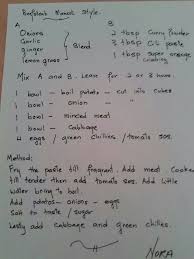 Style.
A B
Onions 2 tbsp Curry Powder
Garlic 3 tbsp C/c paste
ginger Blend 1 tbsp super
lemon grass
Mix A and B. Leave for 2 or 3 hours.
1 bowl - boil potato - cut into cubes
1 bowl - onion "
1 bowl - minced meat
1 bowl - Cabbage
4 eggs / green chillies / tomato sos.
Method:
Fry the paste till fragrant. Add meat. Cooked
till tender then add tomato sos. Add little
water bring to boil.
Add potatoes - onions - eggs
Salt to taste / sugar
Lastly add cabbage and green chillies.
NORA